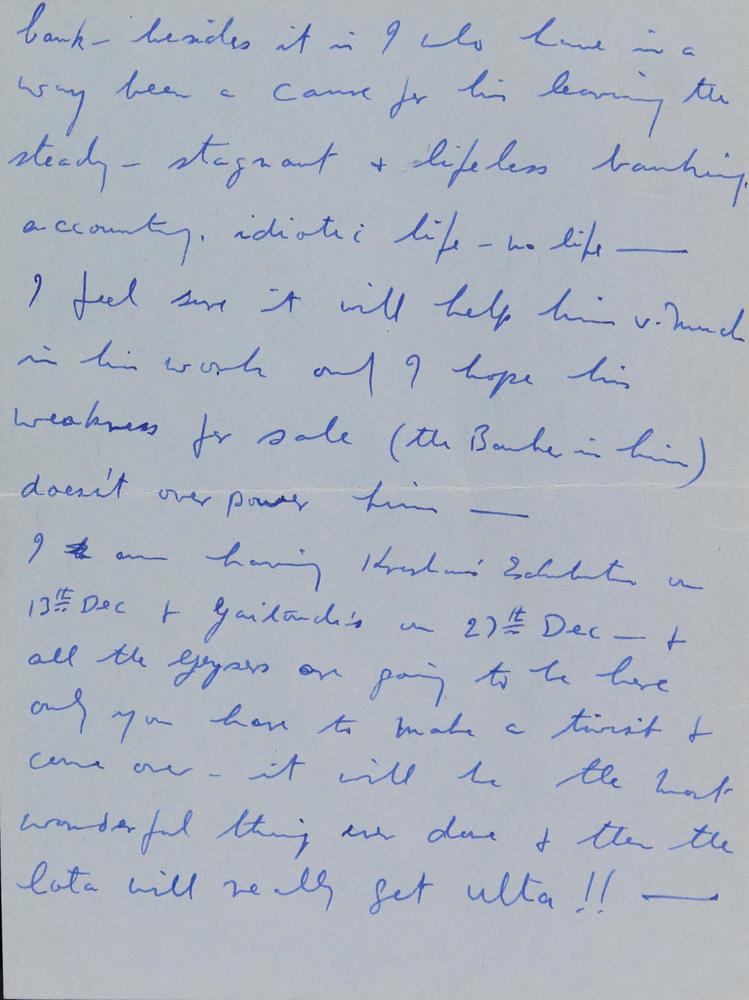 bank - besides it is I who have in a
way been a cause for his leaving the
steady - stagnant + lifeless banking,
accounting, idiotic life - no life —
I feel sure it will help him v. much
in his work and I hope his
weakness for sale (the Banker in him)
doesn't over power him —
I am having Krishna's Exhibition on
13th Dec & Gaitonde's on 27th Dec — &
all the Geysers are going to be here
only you have to make a twist &
come over - it will be the most
wonderful thing ever done & then the
lota will really get ulta !! —